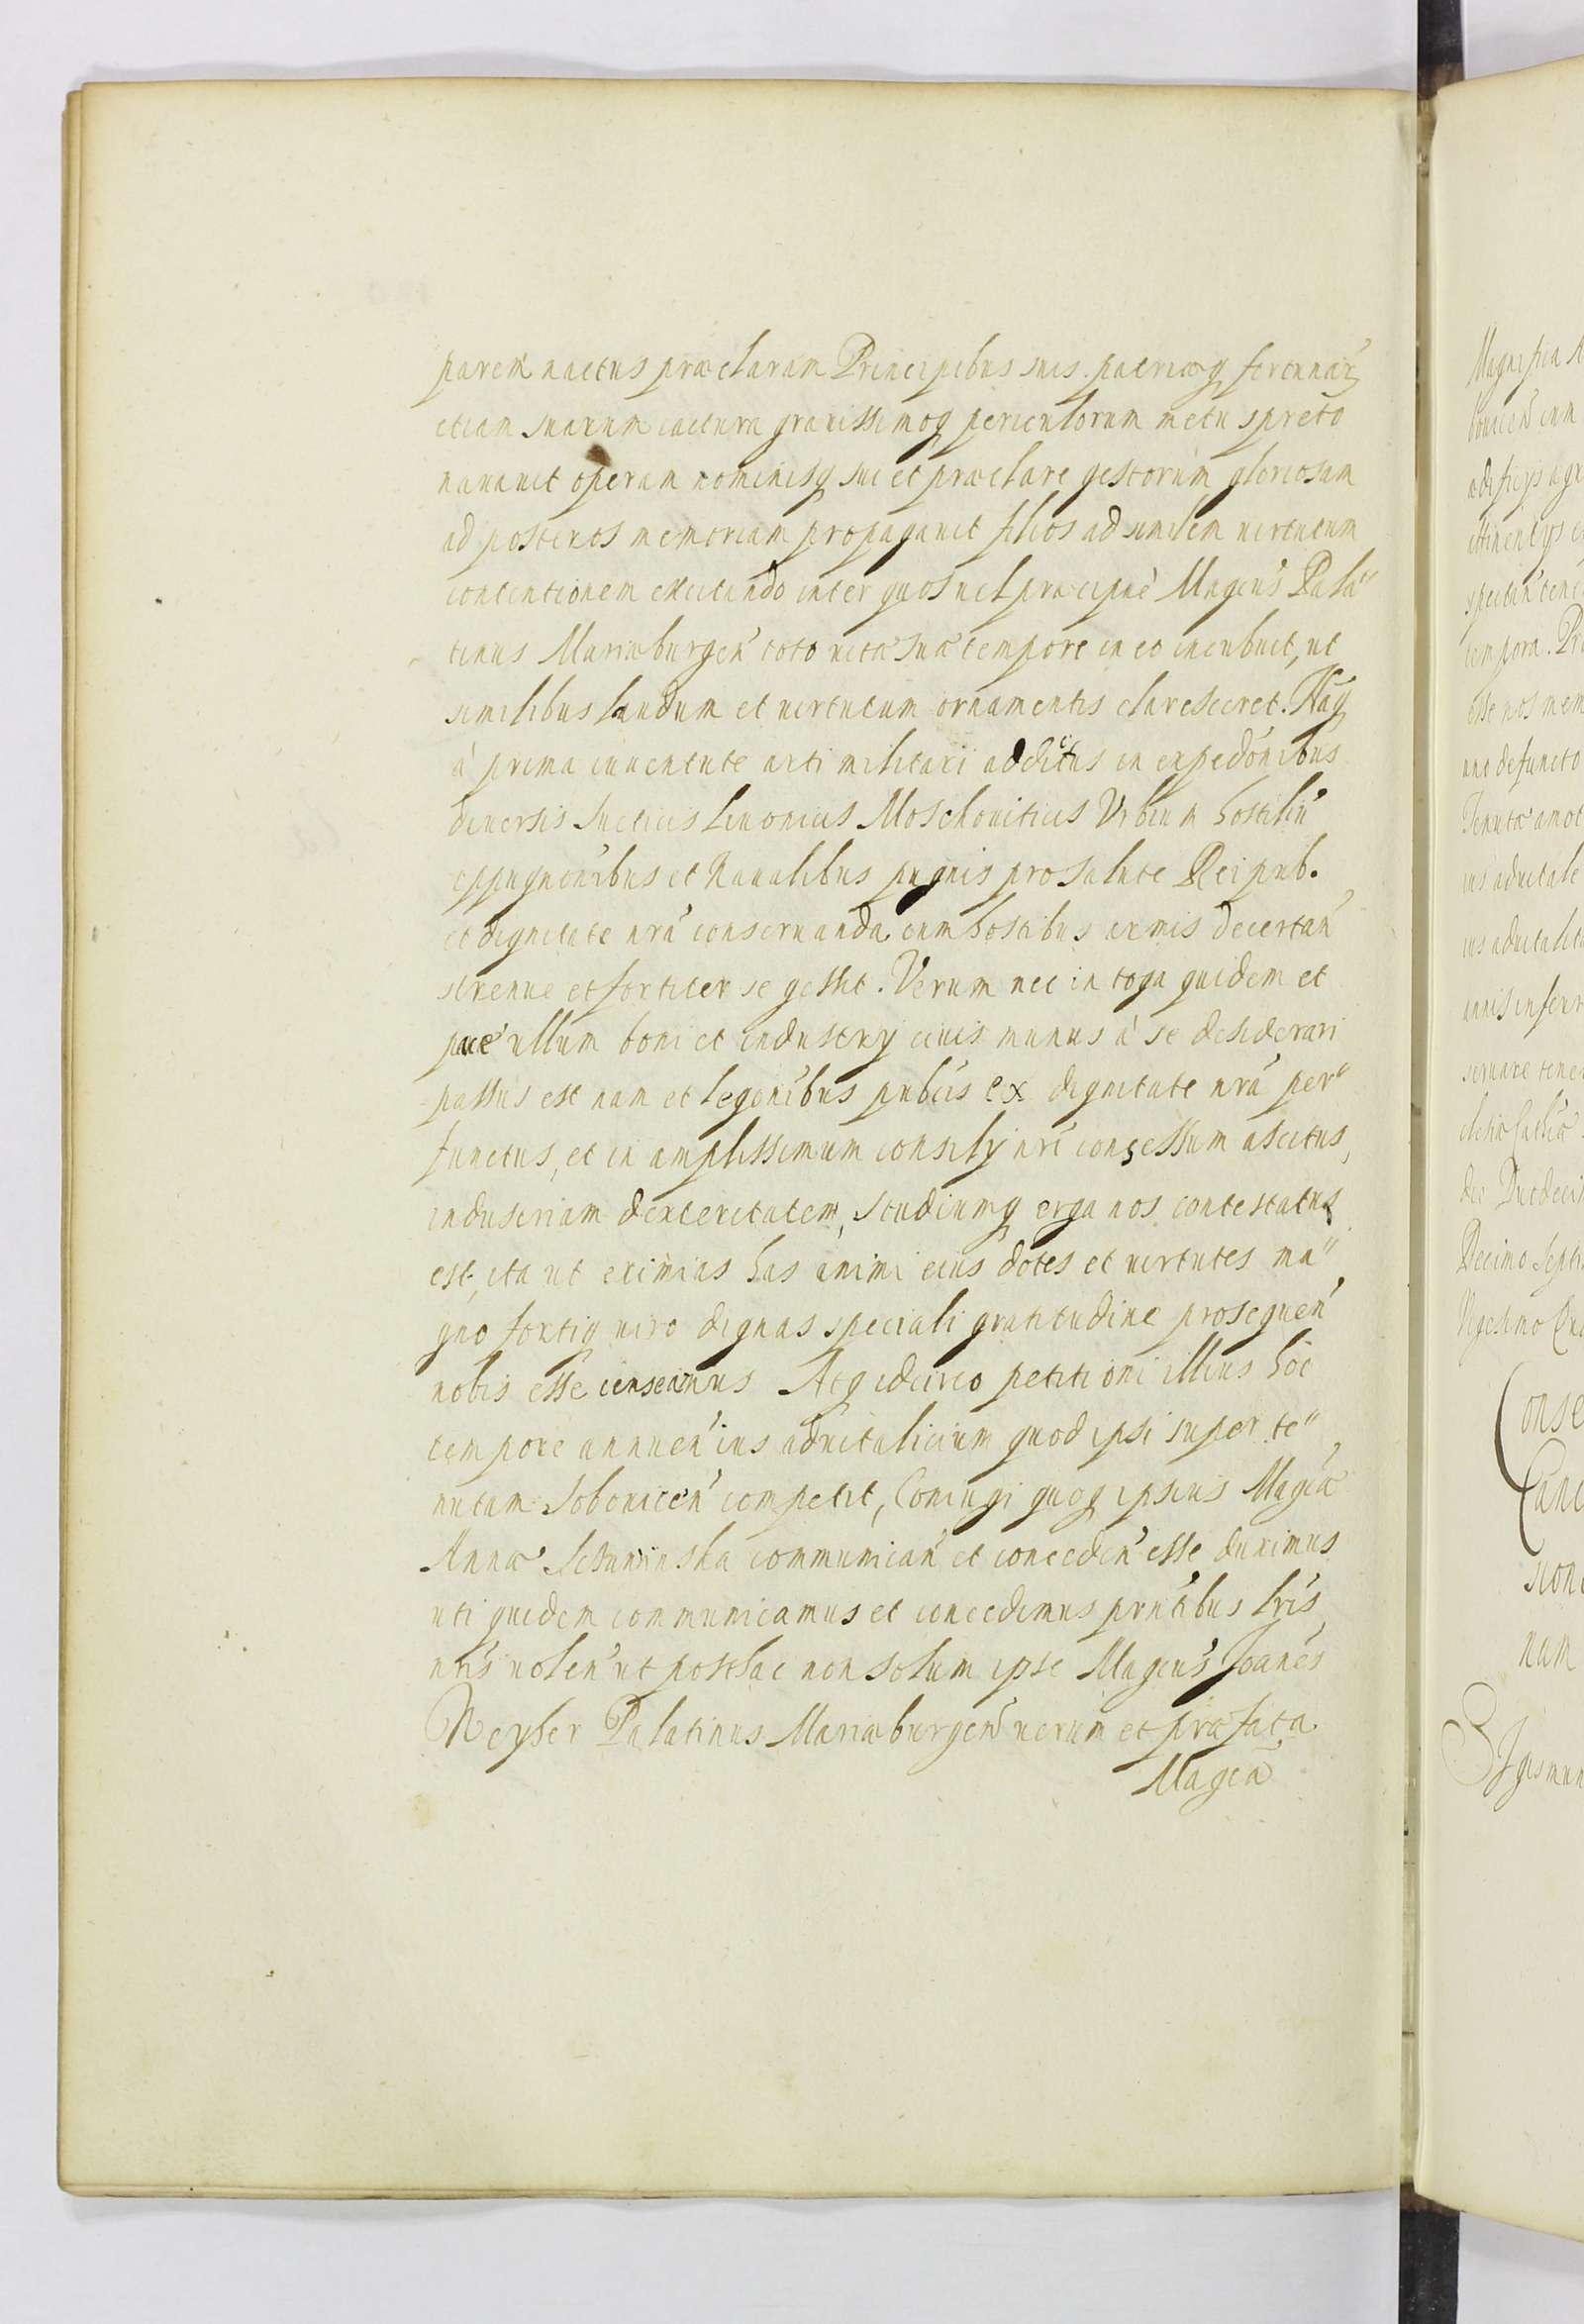 parem nactus præclaram Principibus suis patriæq fortunar
etiam suarum iactura grauissimoq periculorum metu spreto
nauauit operam nominisq sui et præclare gestorum gloriosam
ad posteros memoriam propagauit filios ad similem uirtutum
contentionem excitando inter quos uel præcipuè Magcus Pala"
tinus Mariæburgen toto uitæ suæ tempore in eo incubuit, ut
similibus laudum et uirtutum ornamentis claresceret. Naq
à prima iuuentute arti militari additus in expedonibus
diuersis Sueticis Liuonicis Moschouiticis Vrbium hostiliu
oppugnonibus et Naualibus pugnis pro salute Reipub.
et dignitate nra conseruanda cum hostibus armis decertan
strenue et fortiter se gessit. Verum nec in toga quidem et
pace ullum boni et industrij ciuis munus à se desiderari
passus est nam et legonibus pubcis ex dignitate nra per"
functus, et in amplissimum consilij nri consessum ascitus,
industriam dexteritatem, studiumq erga nos contestatus
est, ita ut eximias has animi eius dotes et uirtutes ma"
gno fortiq uiro dignas speciali gratitudine prosequen
nobis esse censeamus Atq idcirco petitioni illius hoc
tempore annuen ius aduitalicium quod ipsi super te"
nutam Sobouicen competit, Coniugi quoq ipsius Magcæ
Annæ Sczuwinska communican et conceden esse duximus
uti quidem communicamus et concedimus prntibus lris
nris uolen ut posthac non solum ipse Magcus Joanes
Weyher Palatinus Mariæburgen uerum et præfata
Magca